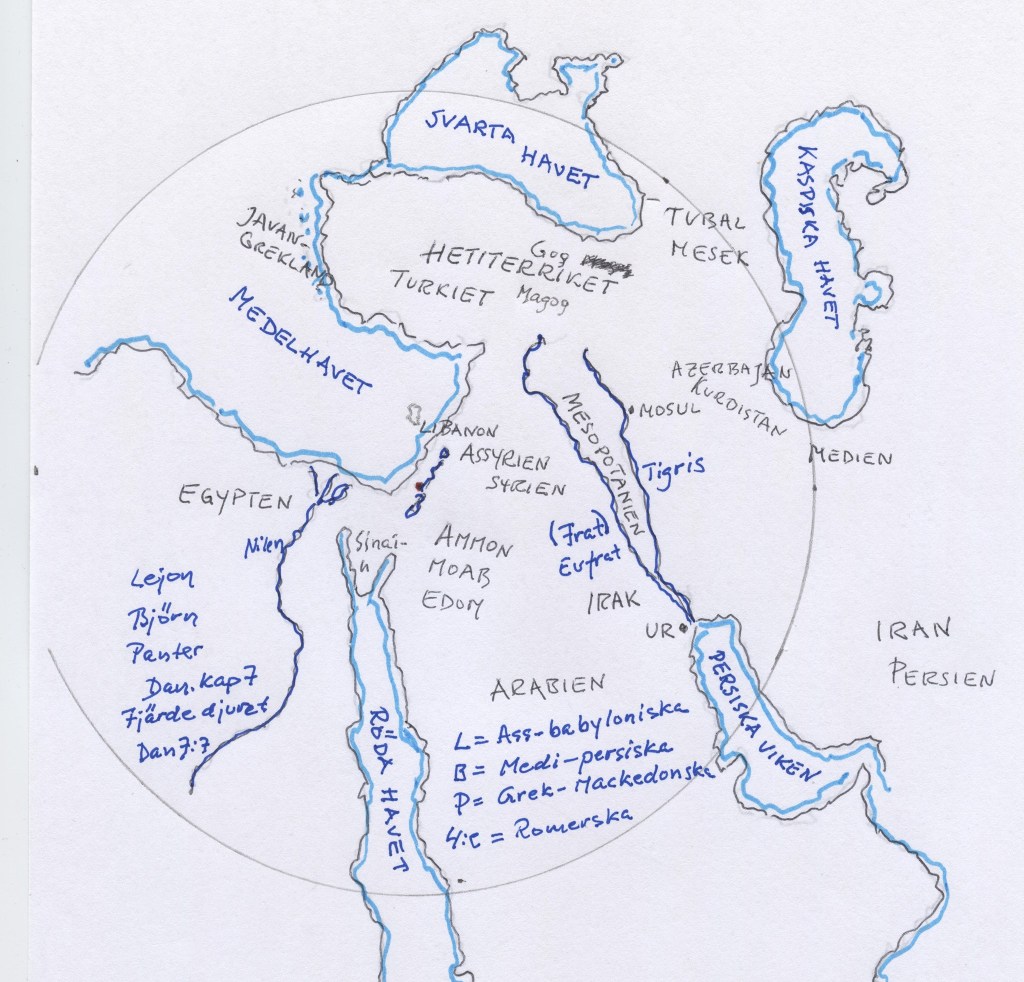 SVARTA
HAVET
KASPISKA HAVET
JAVAN-
GREKLAND
TUBAL
MESEK
Gog
HETITERRIKET
TURKIET
Magog
MEDELHAVET
AZERBAJAN
KURDISTAN
MOSUL
MESOPOTANIEN
LIBANON
ASSYRIEN
SYRIEN
Tigris
MEDIEN
EGYPTEN
Nilen
Sinai-
n
AMMON
MOAB
EDOM
(Frat)
Eufrat
IRAK
UR
IRAN
PERSIEN
Lejon
Björn
Panter
Dan. kap 7
Fjärde djuret
Dan 7:7
ARABIEN
PERSISKA VIKEN
RÖDA HAVET
L = Ass-babyloniska
B = Medi-persiska
P = Grek-Mackedonska
4:e = Romerska